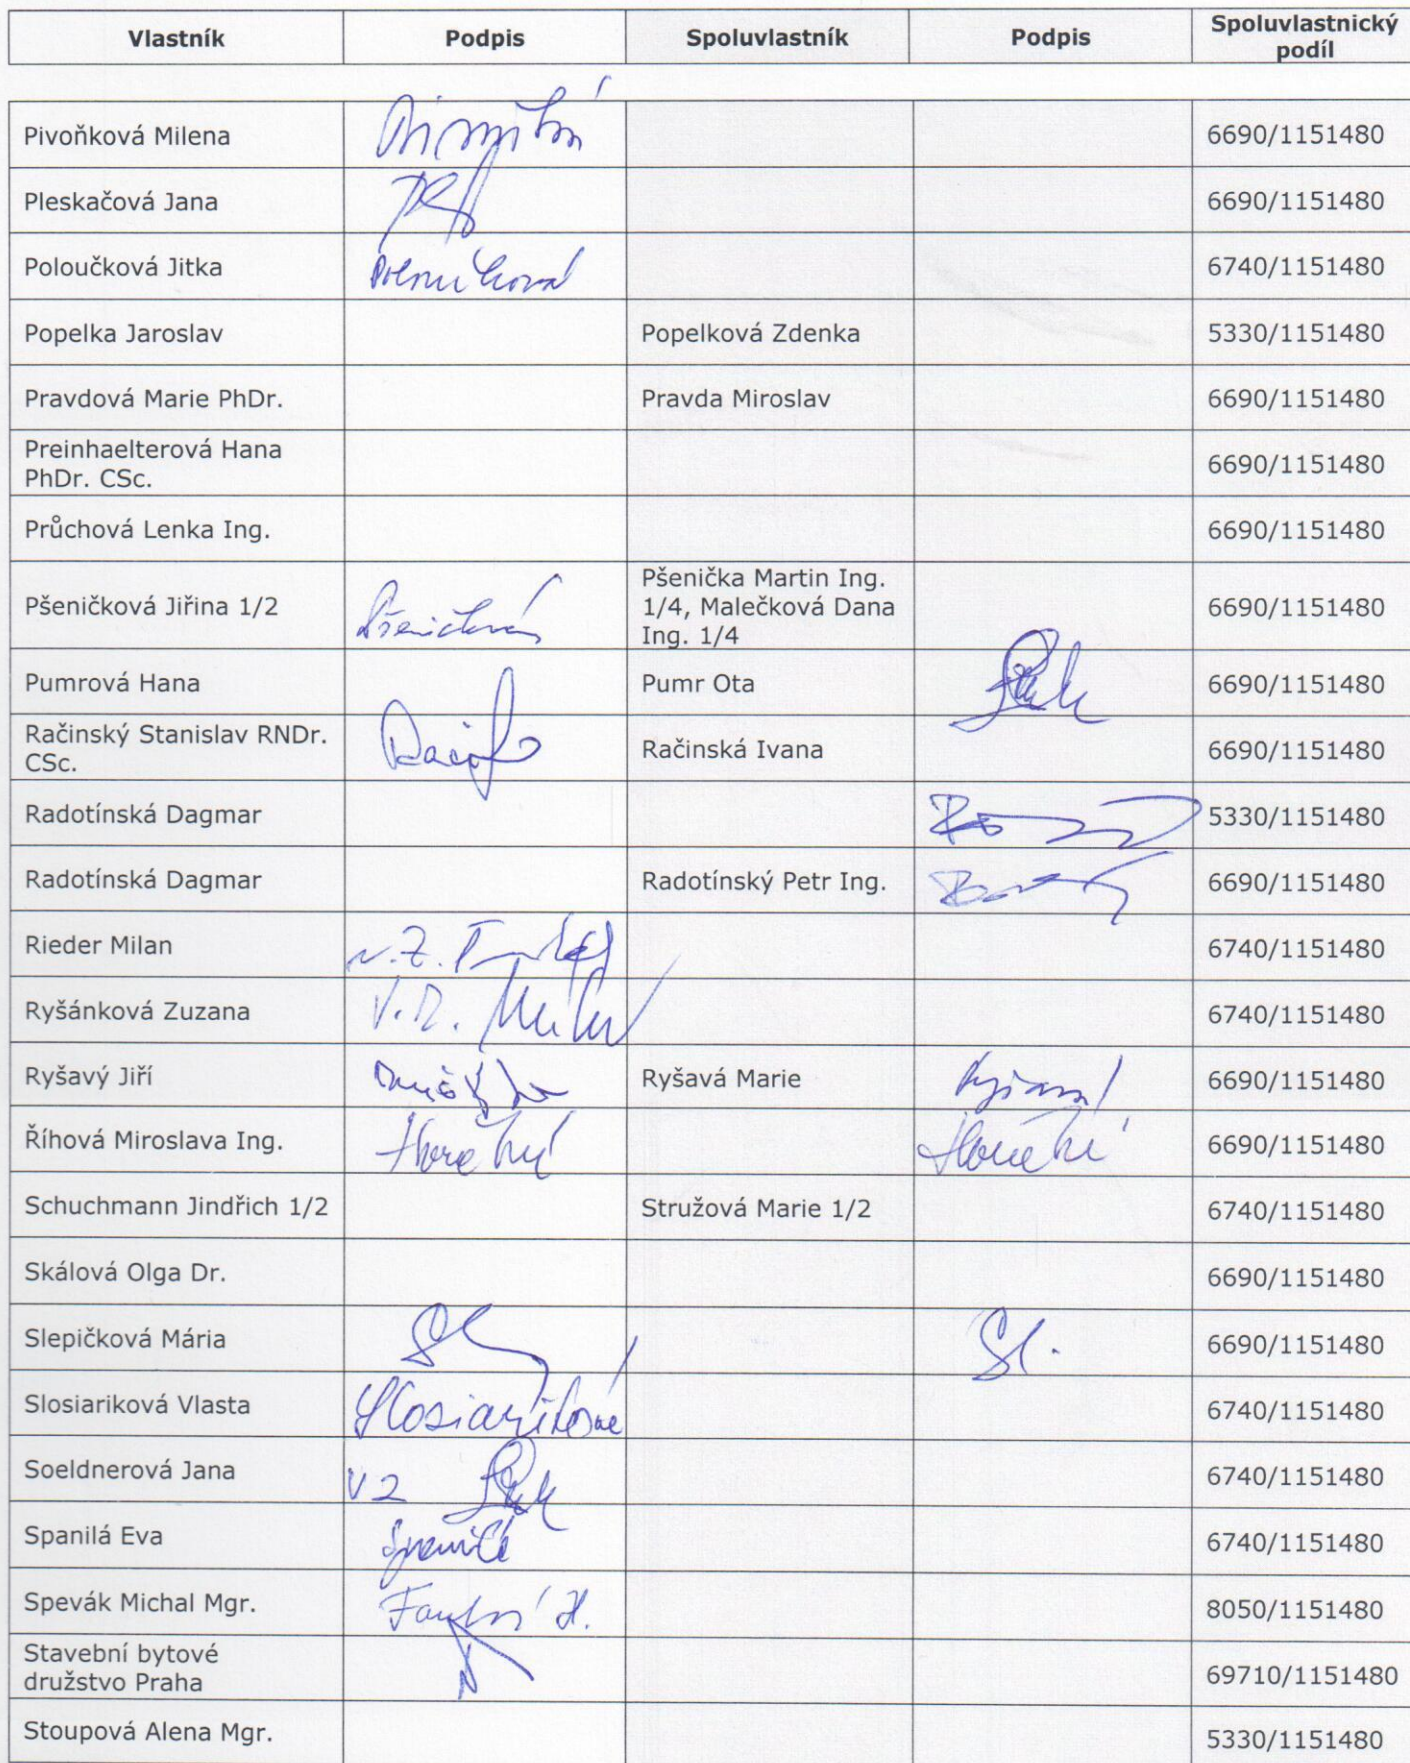 Vlastník Podpis Spoluvlastník Podpis Spoluvlastnický podíl
Pivoňková Milena 6690/1151480
Pleskačová Jana 6690/1151480
Poloučková Jitka 6740/1151480
Popelka Jaroslav Popelková Zdenka 5330/1151480
Pravdová Marie PhDr. Pravda Miroslav 6690/1151480
Preinhaelterová Hana
PhDr. CSc. 6690/1151480
Průchová Lenka Ing. 6690/1151480
Pšeničková Jiřina 1/2 Pšeničková Pšenička Martin Ing.
1/4, Malečková Dana
Ing. 1/4 6690/1151480
Pumrová Hana Pumr Ota 6690/1151480
Račinský Stanislav RNDr.
CSc. Račinská Ivana 6690/1151480
Radotínská Dagmar 5330/1151480
Radotínská Dagmar Radotínský Petr Ing. 6690/1151480
Rieder Milan v.z. 6740/1151480
Ryšánková Zuzana 6740/1151480
Ryšavý Jiří Ryšavá Marie 6690/1151480
Říhová Miroslava Ing. 6690/1151480
Schuchmann Jindřich 1/2 Stružová Marie 1/2 6740/1151480
Skálová Olga Dr. 6690/1151480
Slepičková Mária Sl. 6690/1151480
Slosiariková Vlasta Slosiariková 6740/1151480
Soeldnerová Jana VZ 6740/1151480
Spanilá Eva Spanilá 6740/1151480
Spevák Michal Mgr. 8050/1151480
Stavební bytové
družstvo Praha 69710/1151480
Stoupová Alena Mgr. 5330/1151480